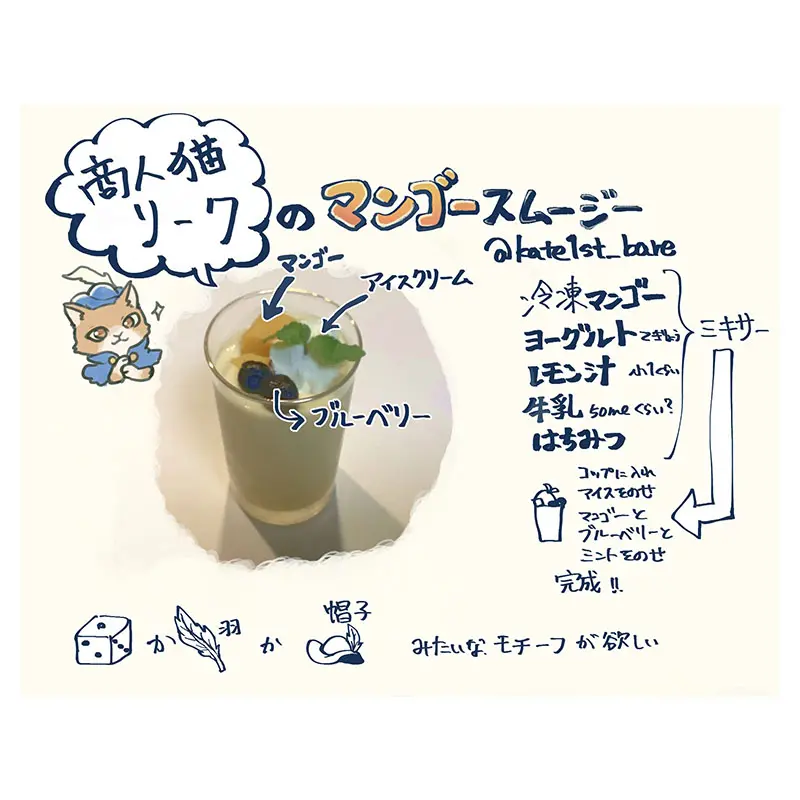 商人猫
リークのマンゴースムージー
@kate1st_bare
マンゴー
アイスクリーム
ブルーベリー
冷凍マンゴー
ヨーグルト てきりょう
レモン汁 小1くらい
牛乳 50mℓくらい?
はちみつ
ミキサー
コップに入れ
アイスをのせ
マンゴーと
ブルーベリーと
ミントをのせ
完成!!
か 羽 か 帽子 みたいな、モチーフが欲しい